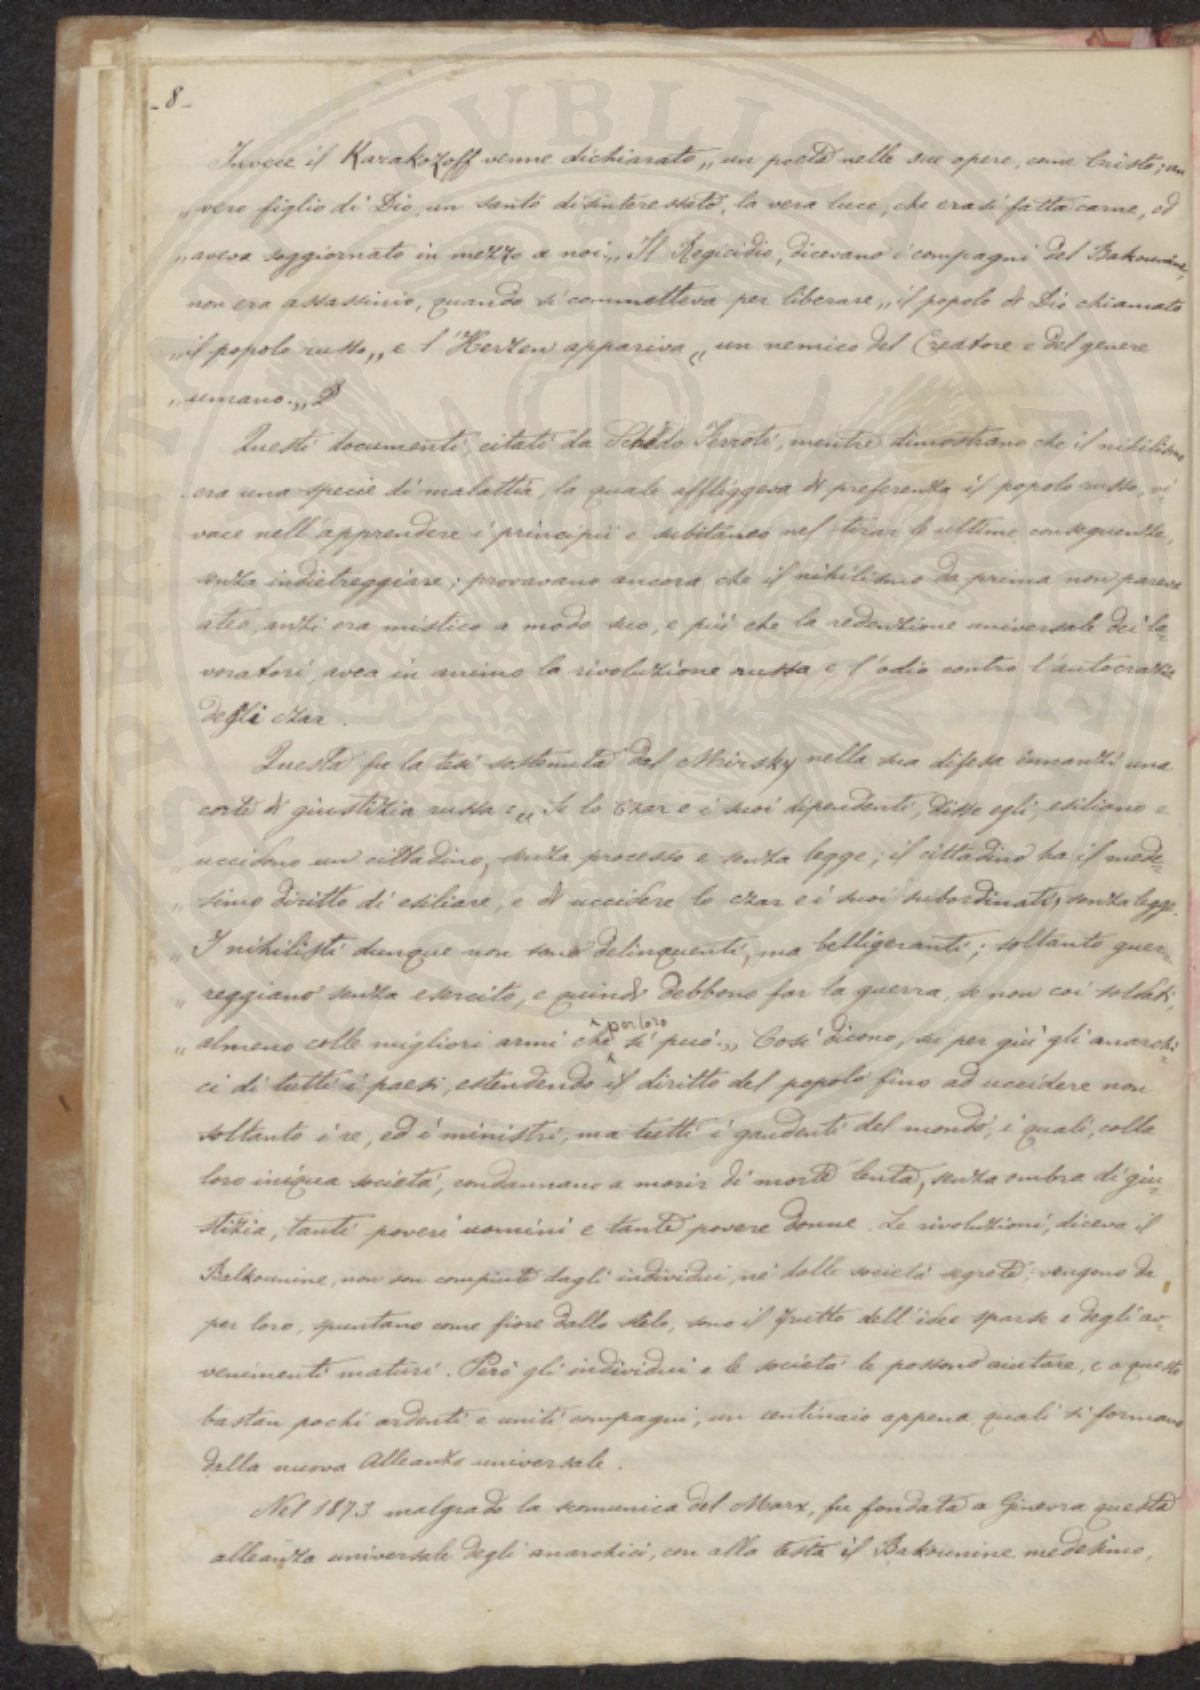 - 8 -
Invece il Karakozoff venne dichiarato „ un poeta nelle sue opere, come Cristo; un
„ vero figlio di Dio, un santo disinteressato, la vera luce, che erasi fatta carne, ed
„ aveva soggiornato in mezzo a noi „ Il Regicidio, dicevano i compagni del Bakounine,
non era assassinio, quando si commetteva per liberare „ il popolo di Dio chiamato
„ il popolo russo „ e l'Herzen appariva „ un nemico del Creatore e del genere
„ umano. „
Questi documenti, citati da Schédo Ferroti, mentre dimostrano che il nihilismo
era una specie di malattia, la quale affliggeva di preferenza il popolo russo, vi-
vace nell'apprendere i principii e subitaneo nel tirar le ultime conseguenze,
senza indietreggiare; provavano ancora che il nihilismo da prima non pareva
ateo, anzi era mistico a modo suo, e più che la redenzione universale dei la-
voratori, avea in animo la rivoluzione russa e l'odio contro l'autocrazia
degli czar.
Questa fu la tesi sostenuta dal Mirsky nella sua difesa innanzi una
corte di giustizia russa: „ Se lo Czar e i suoi dipendenti, disse egli, esiliano e
„ uccidono un cittadino, senza processo e senza legge; il cittadino ha il mede-
„ simo diritto di esiliare, e di uccidere lo czar e i suoi subordinati, senza legge.
„ I nihilisti dunque non sono delinquenti, ma belligeranti; soltanto guer-
„ reggiano senza esercito, e quindi debbono far la guerra, se non coi soldati,
„ almeno colle migliori armi che per loro si può. „ Così dicono, su per giù gli anarchi-
ci di tutti i paesi, estendendo il diritto del popolo fino ad uccidere non
soltanto i re, ed i ministri, ma tutti i gaudenti del mondo, i quali, colla
loro iniqua società, condannano a morir di morte lenta, senza ombra di giu-
stizia, tanti poveri uomini e tante povere donne. Le rivoluzioni, diceva il
Bakounine, non son compiute dagli individui, nè dalle società segrete; vengono da
per loro, spuntano come fiore dallo stelo, sono il frutto dell'idee sparse e degli av-
venimenti maturi. Però gli individui e le società le possono aiutare, e a questo
bastan pochi ardenti e uniti compagni, un centinaio appena, quali si formano
dalla nuova Alleanza universale.
Nel 1873 malgrado la scomunica del Marx, fu fondata a Ginevra questa
alleanza universale degli anarchici, con alla testa il Bakounine medesimo,